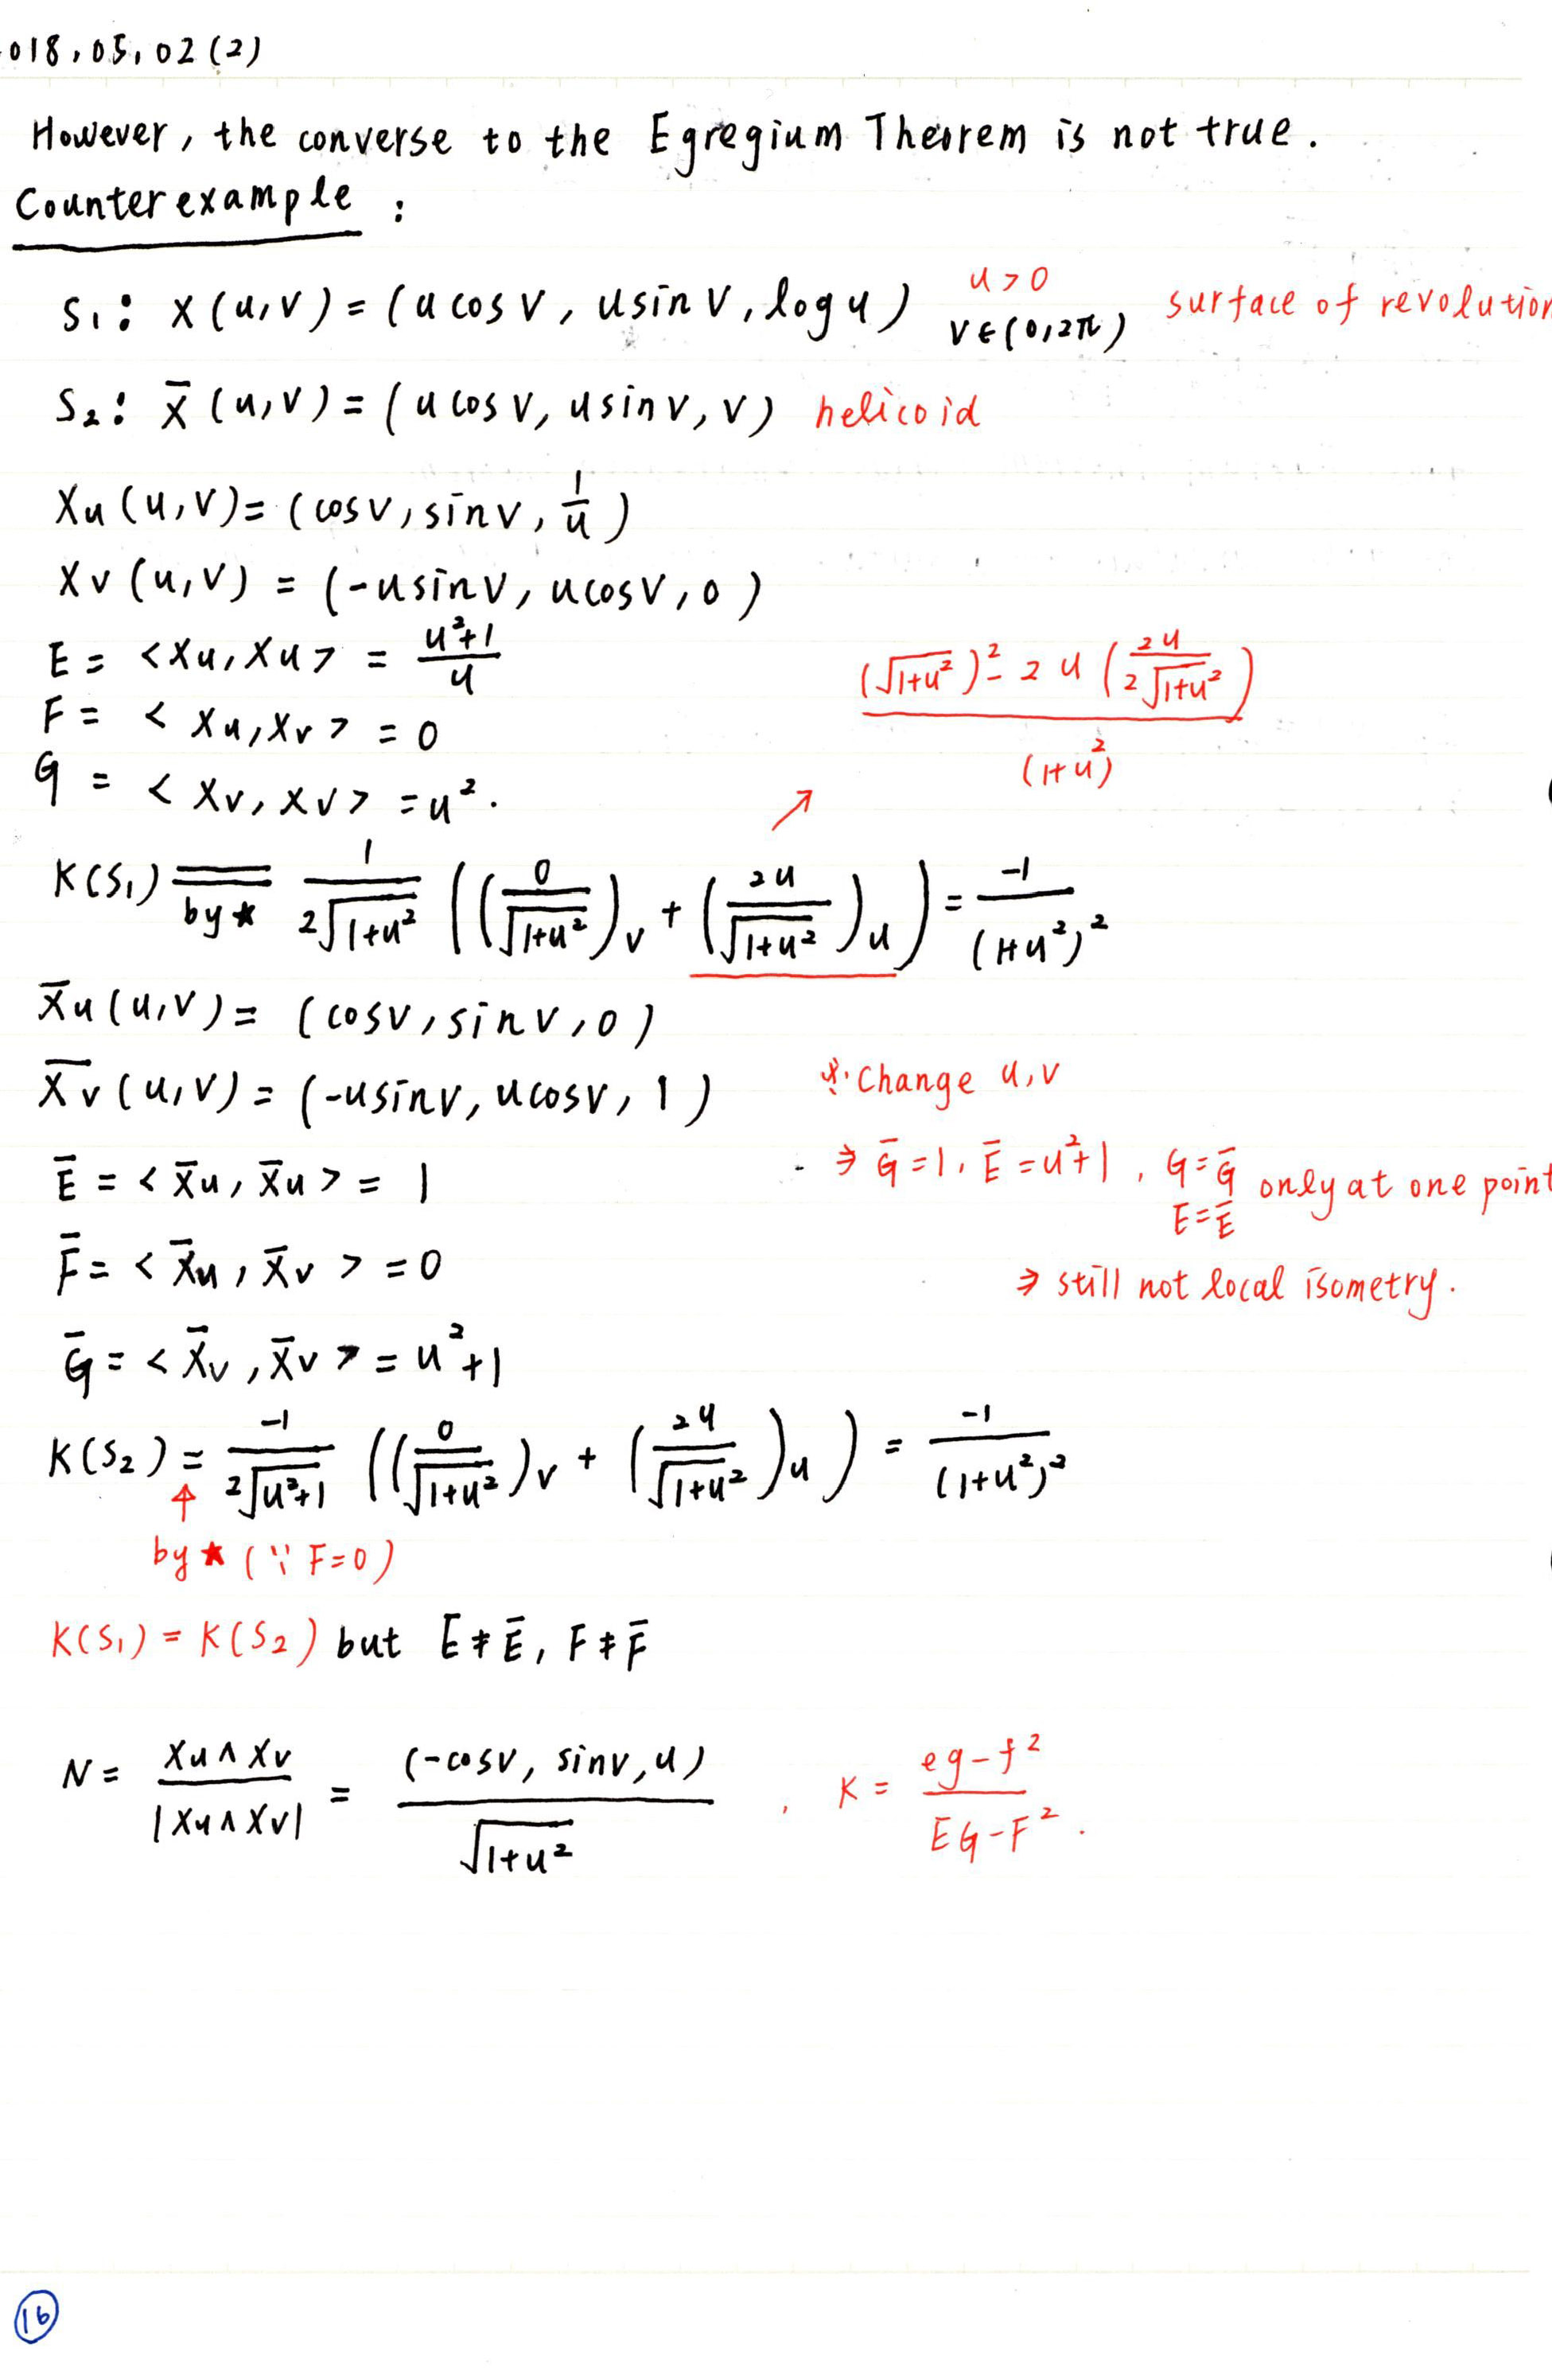 018,05,02(2)
However, the converse to the Egregium Theorem is not true.
Counterexample :
S₁: X(u,v) = (u cos v, u sin v, log u) u>0 v∈(0,2π) surface of revolution
S₂: X̄(u,v) = (u cos v, u sin v, v) helicoid
Xu(u,v) = (cos v, sin v, 1/u)
Xv(u,v) = (-u sin v, u cos v, 0)
E = <Xu, Xu> = (u²+1)/u
((√(1+u²))² - 2u(2u/(2√(1+u²))))/(1+u²)
F = <Xu, Xv> = 0
G = <Xv, Xv> = u².
↗
K(S₁) = by ★ 1/(2√(1+u²)) ((0/√(1+u²))v + (2u/√(1+u²))u) = -1/(1+u²)²
X̄u(u,v) = (cos v, sin v, 0)
X̄v(u,v) = (-u sin v, u cos v, 1)
※: Change u,v
Ē = <X̄u, X̄u> = 1
⇒ Ḡ=1, Ē=u²+1, G=Ḡ E=Ē only at one point
F̄ = <X̄u, X̄v> = 0
⇒ still not local isometry.
Ḡ = <X̄v, X̄v> = u²+1
K(S₂) = -1/(2√(u²+1)) ((0/√(1+u²))v + (2u/√(1+u²))u) = -1/(1+u²)²
↑
by ★ (∵ F=0)
K(S₁) = K(S₂) but E≠Ē, F≠F̄
N = Xu∧Xv/|Xu∧Xv| = (-cos v, sin v, u)/√(1+u²) , K = (eg-f²)/(EG-F²).
16